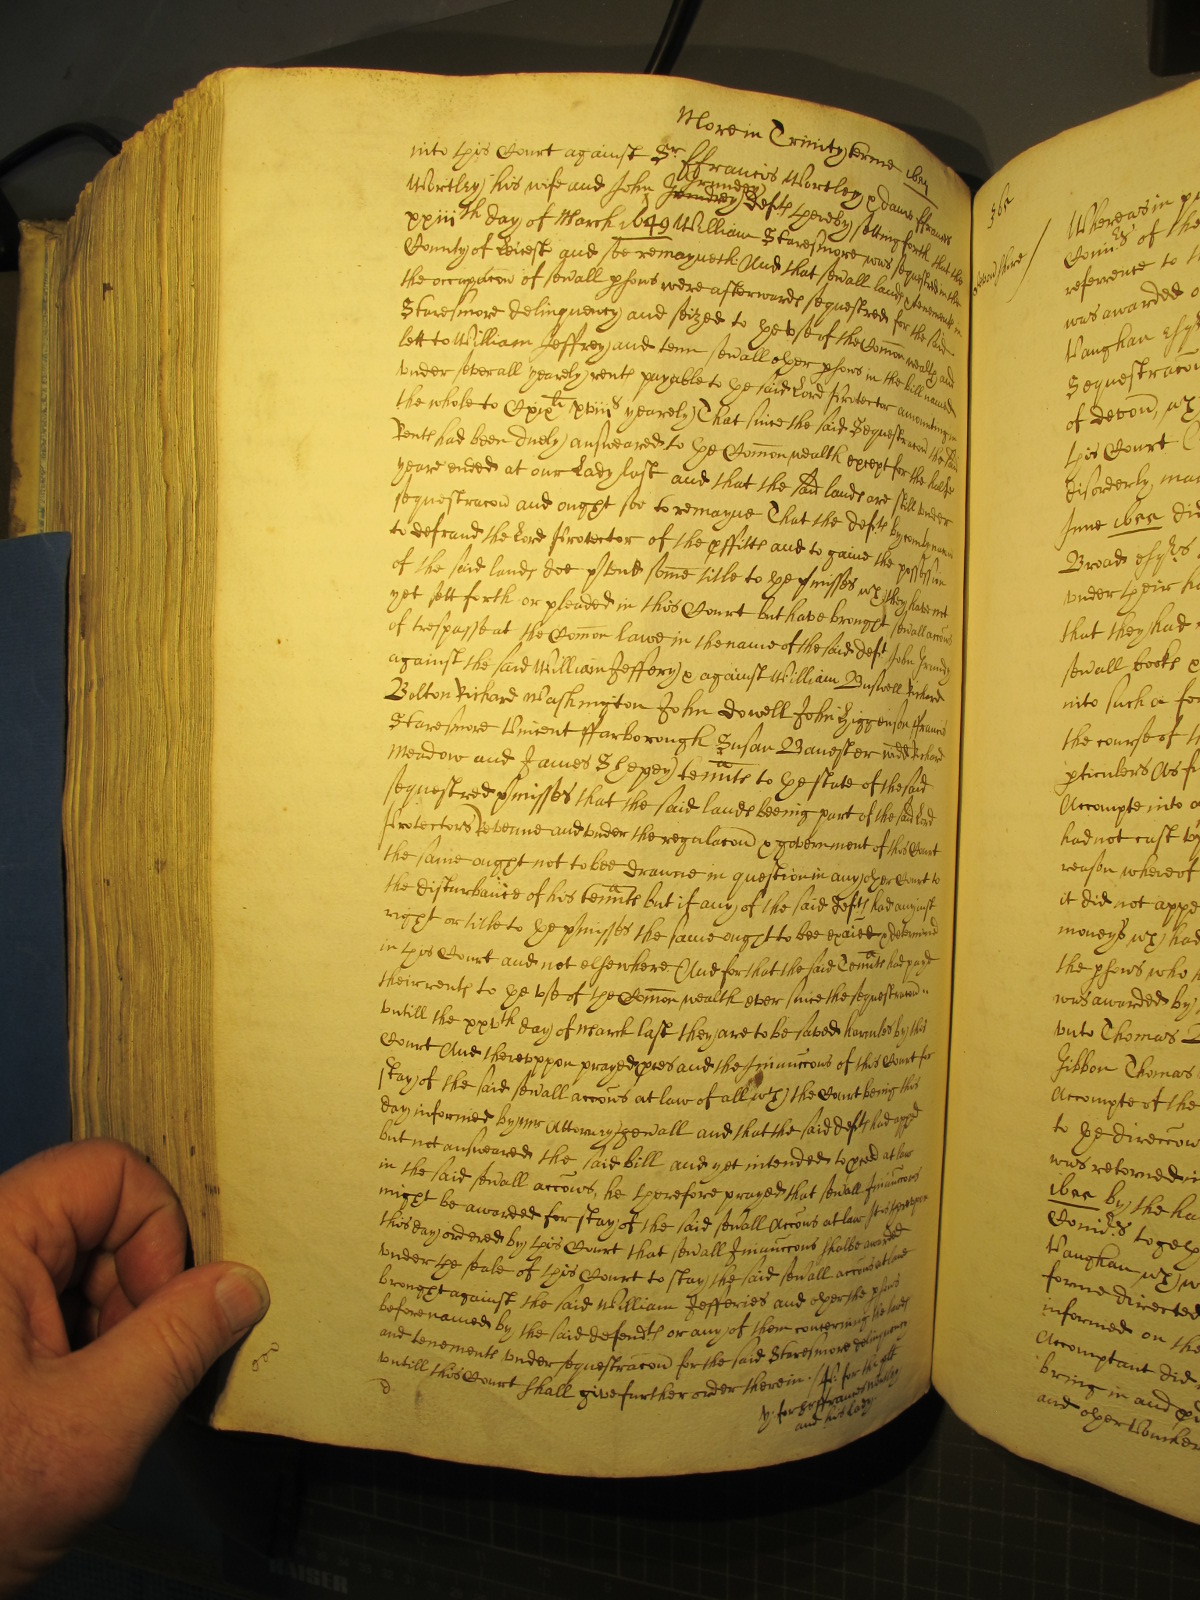 More in Trinity terme 1655
into this Court against Sr ffrancis Wortley & dame ffrances
Wortley his wife and John Grundey defts thereby setting forth that the
xxiiiith day of March 1649 William Staresmore was sequestred in the
County of Leicest and soe remayneth And that seuall lands & tenements in
the occupacon of seuall psons were afterwards sequestred for the said
Staresmore delinquency and seized to the vse of the Comon wealth and
lett to William Jeffrey and tenn seuall other psons in the bill named
vnder seuerall yearely rents payable to the said Lord Protector amounting in
the whole to Cxixli xviiis yearely That since the said Sequestracon the said
Rents had been duely answeared to the Comon wealth except for the halfe
yeare ended at our Lady last and that the said lands are still vnder
sequestracon and ought soe to remayne That the defts by combynacon
to defraud the Lord Protector of the pffitts and to gaine the possession
of the said lands doe ptend some title to the pmisses wch they have not
yet sett forth or pleaded in this Court but have brought seuall accons
of trespasse at the Comon lawe in the name of the said deft John Grundy
against the said William Jeffery & against William Buswell Richard
Bolton Richard Washington John Dowell John Higginson ffrancis
Staresmore Vincent ffarborough Susan Banester widd Richard
Meadow and James Shepey tennts to the state of the said
sequestred pmisses that the said lands beeing part of the said Lord
Protectors Revenue and vnder the regulacon & government of this Court
the same ought not to bee drawne in question in any other Court to
the disturbance of his tennts but if any of the said defts had any iust
right or title to the pmisses the same ought to bee & determined
in this Court and not elsewhere And for that the said Tennts had payd
their rents to the vse of the Comon wealth ever since the sequestracon
vntill the xxvth day of March last they are to be saved harmles by this
Court And therevppon prayed pces and the Iniunccons of this Court for
stay of the said seuall accons at law of all wch the Court being this
day informed by mr Attorney genall and that the said defts had appd
but not answeared the said bill and yet intended to pceed at law
in the said seuall accons, he therefore prayed that seuall Iniunccons
might be awarded for stay of the said seuall Accons at law It is therefore
this day ordered by this Court that seuall Iniunccons shalbe awarded
vnder the seale of this Court to stay the said seuall accons at lawe
brought against the said William Jefferies and other the psons
before named by the said defendts or any of them concerning the lands
and tenements vnder sequestracon for the said Staresmores delinquency
vntill this Court shall give further order therein.
for Sr ffrancis Wortley
and his Lady
386
Devonshire
Whereas in
Comrs of the
reference to
was awarded
Vaughan esqr
Sequestracon
of Devon, wch
this Court
disorderly, man
June 1655 did
Broad esqrs
vnder their ha
that they had
seuall books
into such a for
the course of
pticulers As
Accompte into
had not cast
reason whereof
it did not appe
moneys wch had
the psons who
was awarded by
vnto Thomas
Gibbon Thomas
Accompte of the
to the direccon
was returned
1655 by the ha
Comrs together
Vaughan wch
forme directed
informed on the
Accomptant did
bring in and
and other Vouchers